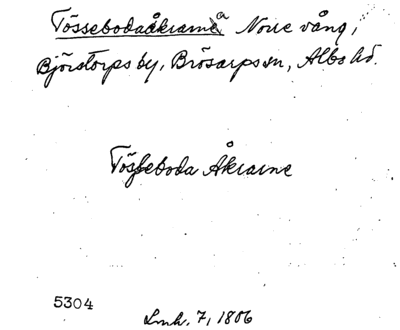 Tössebodaåkrarna Norre vång,
Björstorps by, Brösarps sn, Albo hd.
Tösseboda Åkrarne
5304
Lmh. 7, 1806